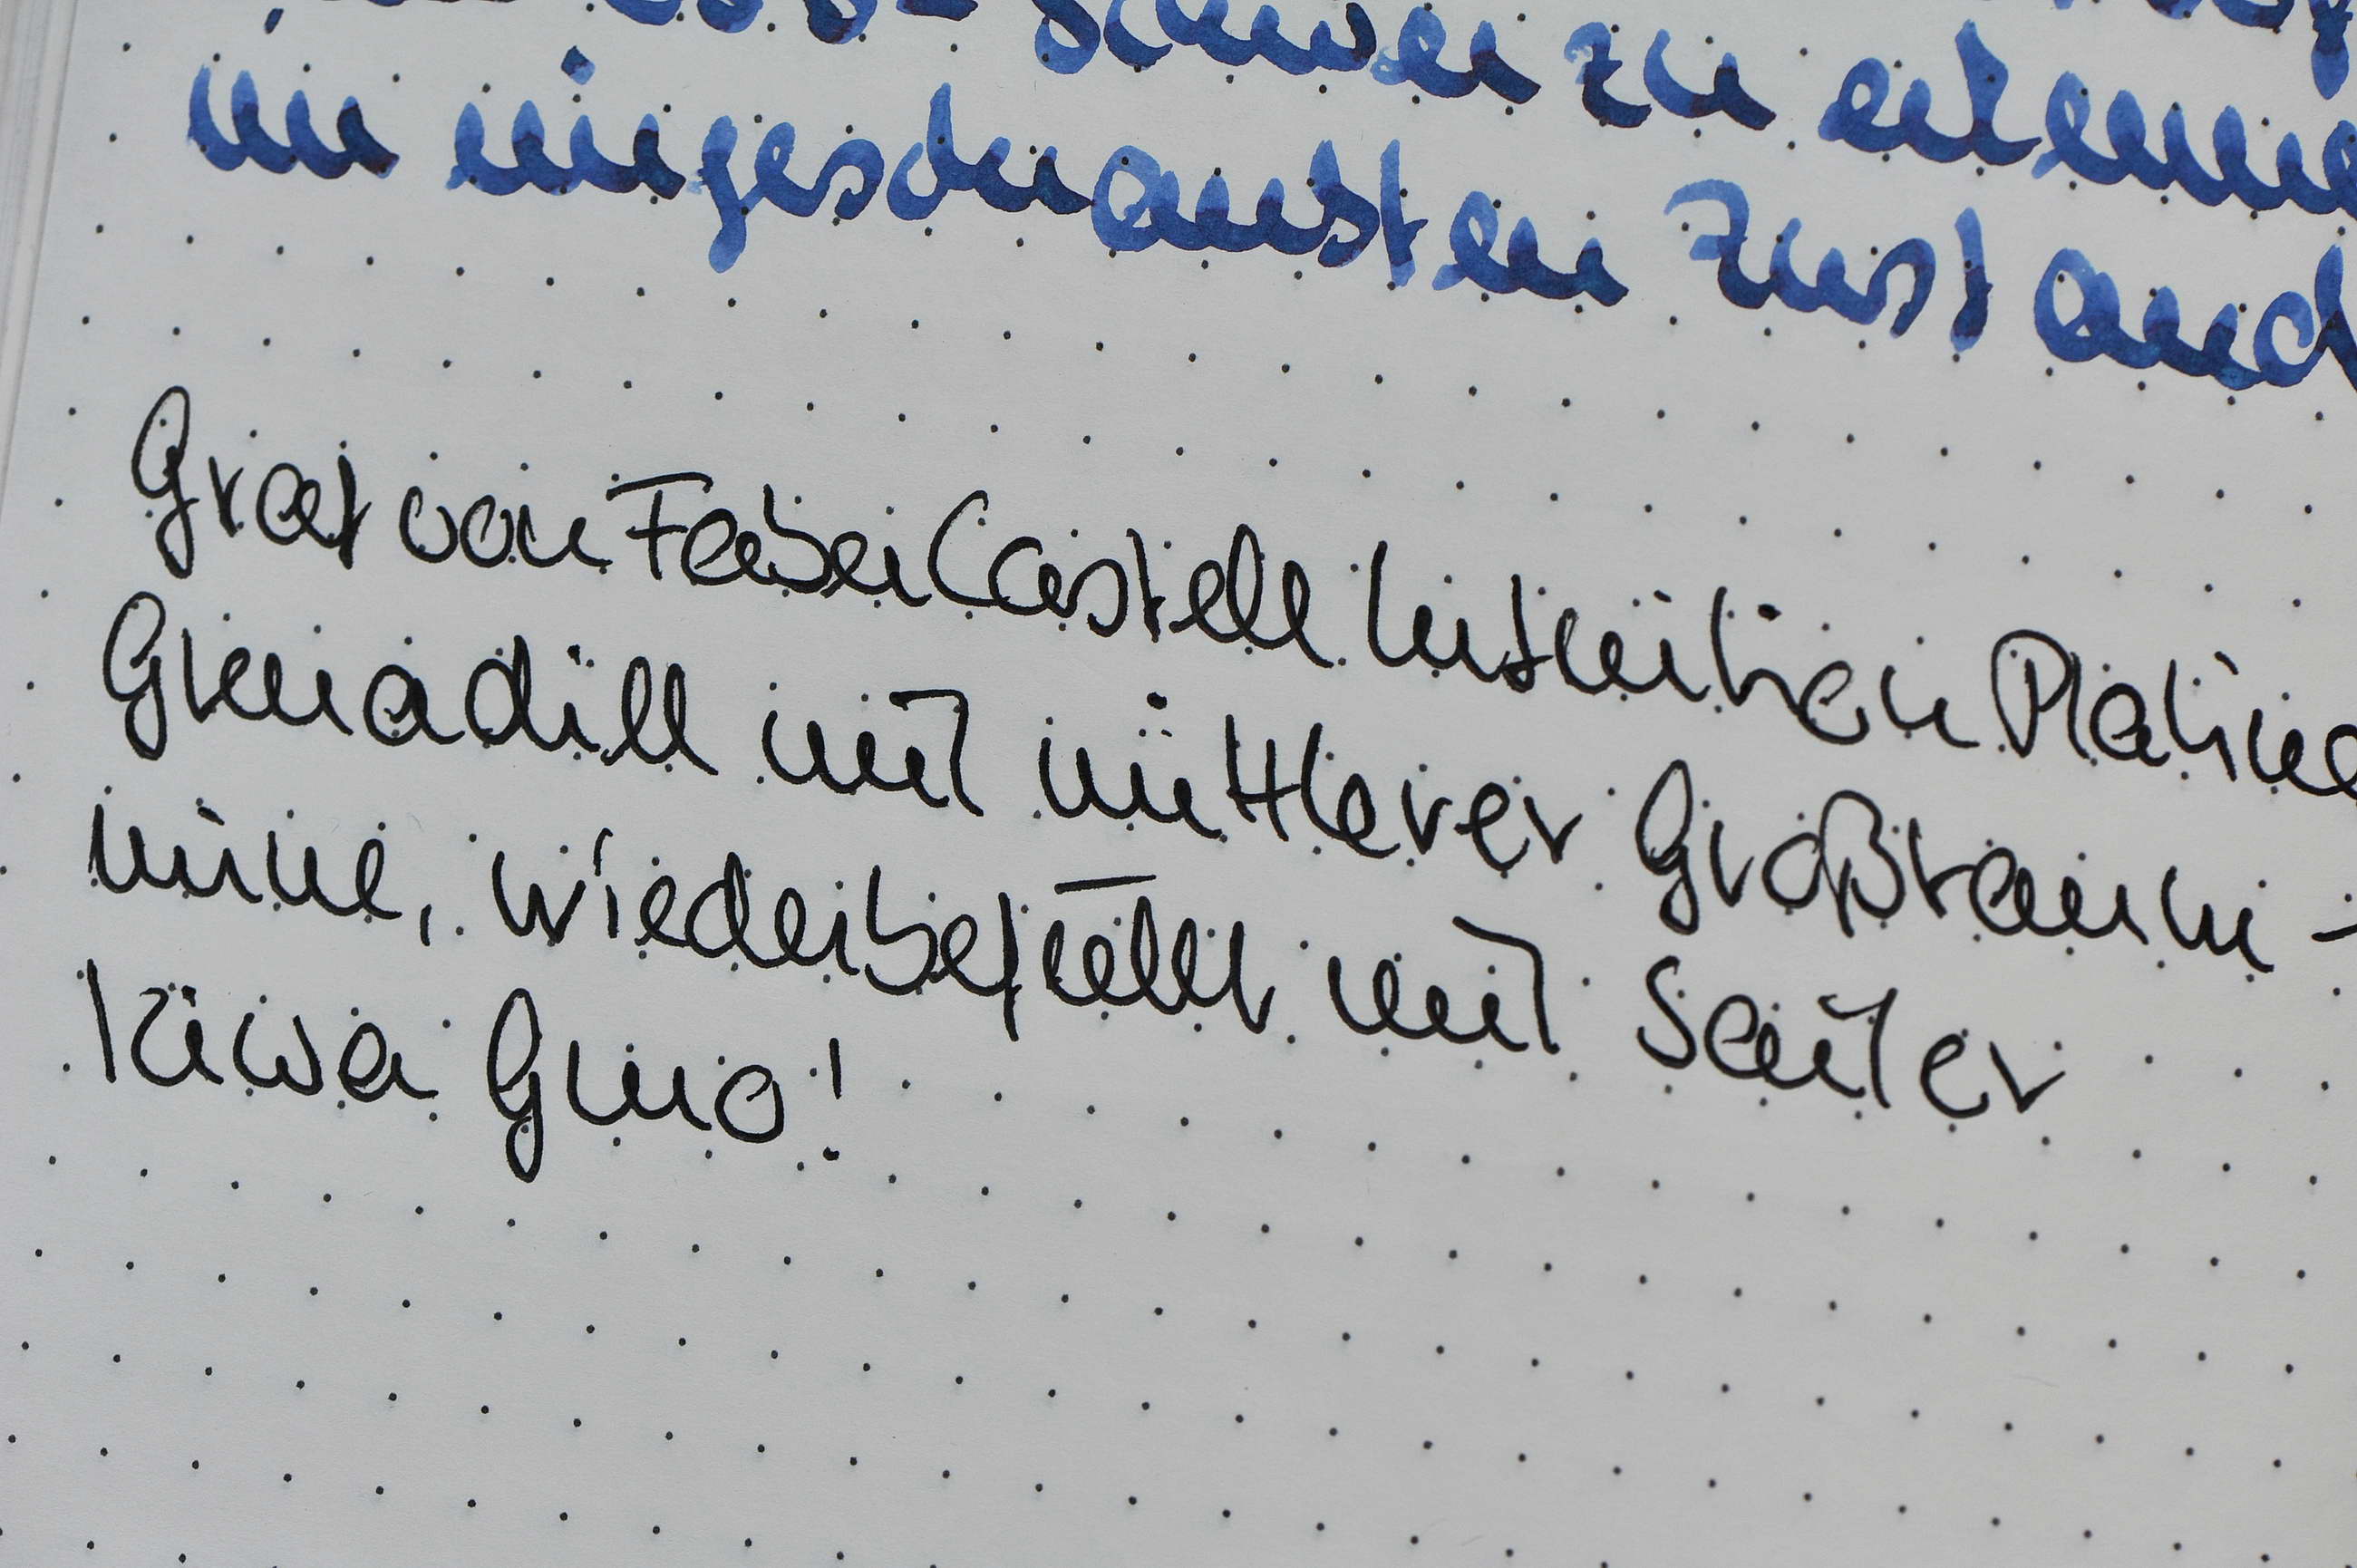 schwer zu erkennen
im eingeschraubten Zustand
Graf von Faber Castell Intuition Platino
Grenadill mit mittlerer Großraum-
mine, wiederbefüllt mit Sailer
Kiwa Guro!